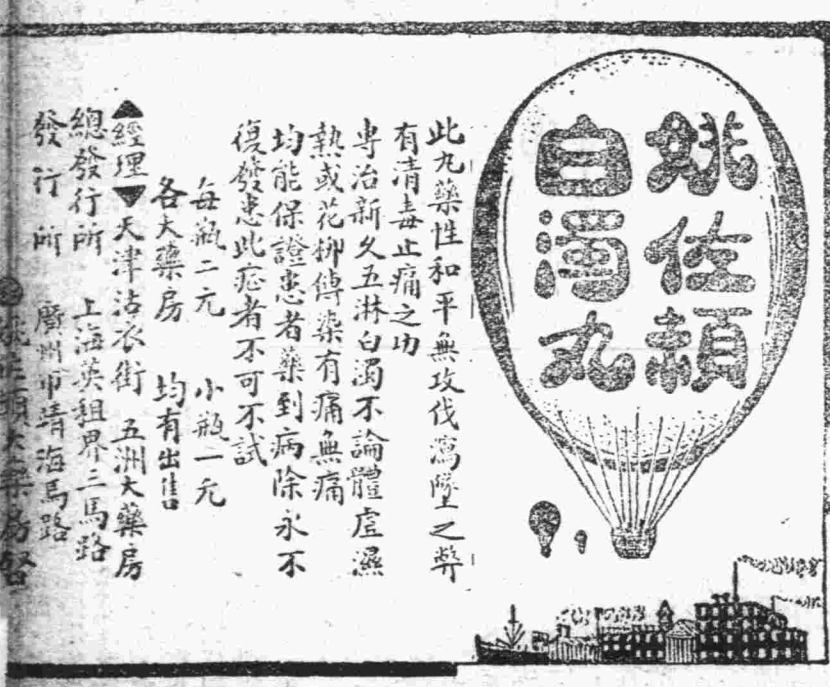 姚佐頓
白濁丸
此丸藥性和平無攻伐瀉墜之弊
有清毒止痛之功
專治新久五淋白濁不論體虛濕
熱或花柳傳染有痛無痛
均能保證患者藥到病除永不
復發患此症者不可不試
每瓶二元　小瓶一元
各大藥房　均有出售
▲經理▼天津沽衣街　五洲大藥房
總發行所　上海英租界三馬路
發行所　廣州市靖海馬路
姚佐頓大藥房啓